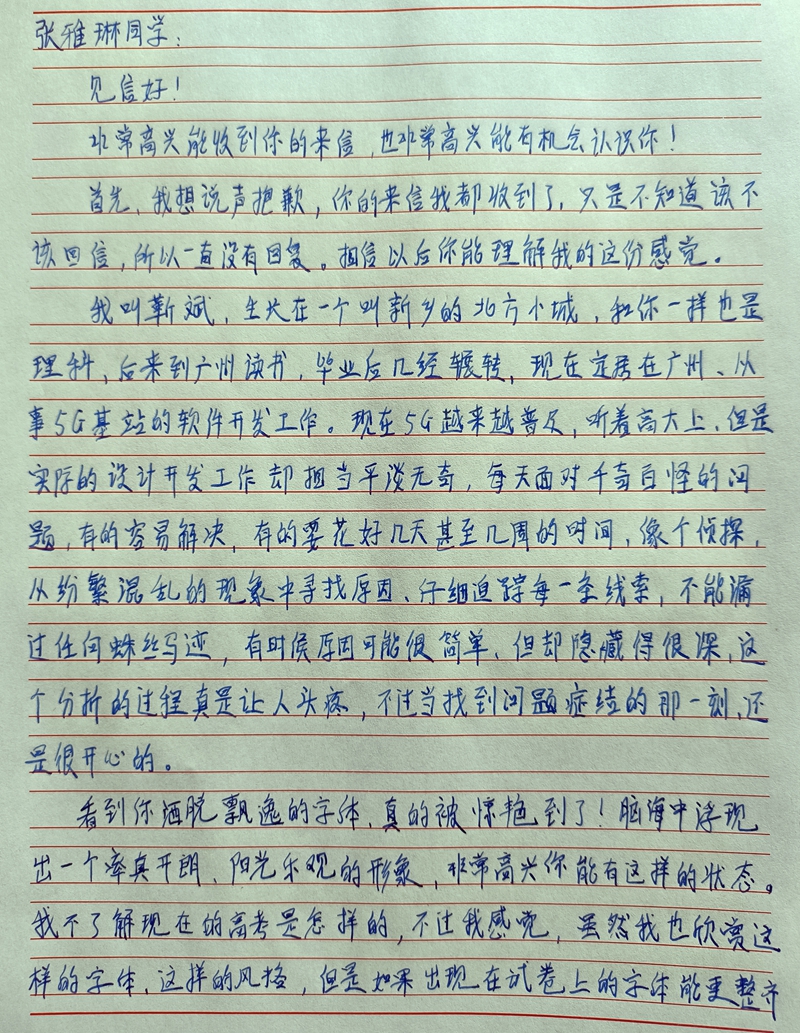 张雅琳同学:
见信好!
非常高兴能收到你的来信,也非常高兴能有机会认识你!
首先,我想说声抱歉,你的来信我都收到了,只是不知道该不
该回信,所以一直没有回复。相信以后你能理解我的这份感觉。
我叫靳斌,生长在一个叫新乡的北方小城,和你一样也是
理科,后来到广州读书,毕业后几经辗转,现在定居在广州、从
事5G基站的软件开发工作。现在5G越来越普及,听着高大上,但是
实际的设计开发工作却相当平淡无奇,每天面对千奇百怪的问
题,有的容易解决,有的要花好几天甚至几周的时间,像个侦探,
从纷繁混乱的现象中寻找原因、仔细追踪每一条线索,不能漏
过任何蛛丝马迹,有时候原因可能很简单,但却隐藏得很深,这
个分析的过程真是让人头疼,不过当找到问题症结的那一刻,还
是很开心的。
看到你洒脱飘逸的字体,真的被惊艳到了!脑海中浮现
出一个率真开朗、阳光乐观的形象,非常高兴你能有这样的状态。
我不了解现在的高考是怎样的,不过我感觉,虽然我也欣赏这
样的字体,这样的风格,但是如果出现在试卷上的字体能更整齐